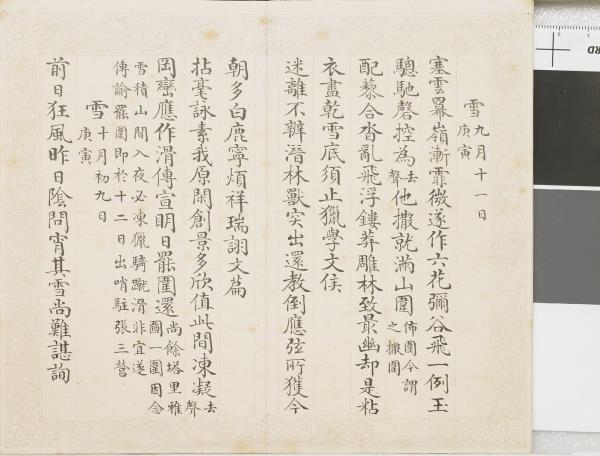 雪九月十一日
庚寅
塞雲冪嶺漸霏微遂作六花彌谷飛一例玉
驄馳磬控為去聲他撒就滿山圍佈圍今謂
之撒圍
配藜合沓亂飛浮鏤莽雕林致最幽却是粘
衣盡乾雪底須止獵學文侯
迷離不辨潛林獸突出還教倒應弦所獲今
朝多白鹿寧煩祥瑞詡文篇
拈毫詠素我原閑創景多欣值此間凍凝去聲
岡巒應作滑傳宣明日罷圍還尚餘塔里雅
圖一圍因念
雪積山間入夜必凍獵騎蹴滑非宜遂
傳諭罷圍即於十二日出哨駐張三營
雪十月初九日
庚寅
前日狂風昨日陰問宵其雪尚難諶詢